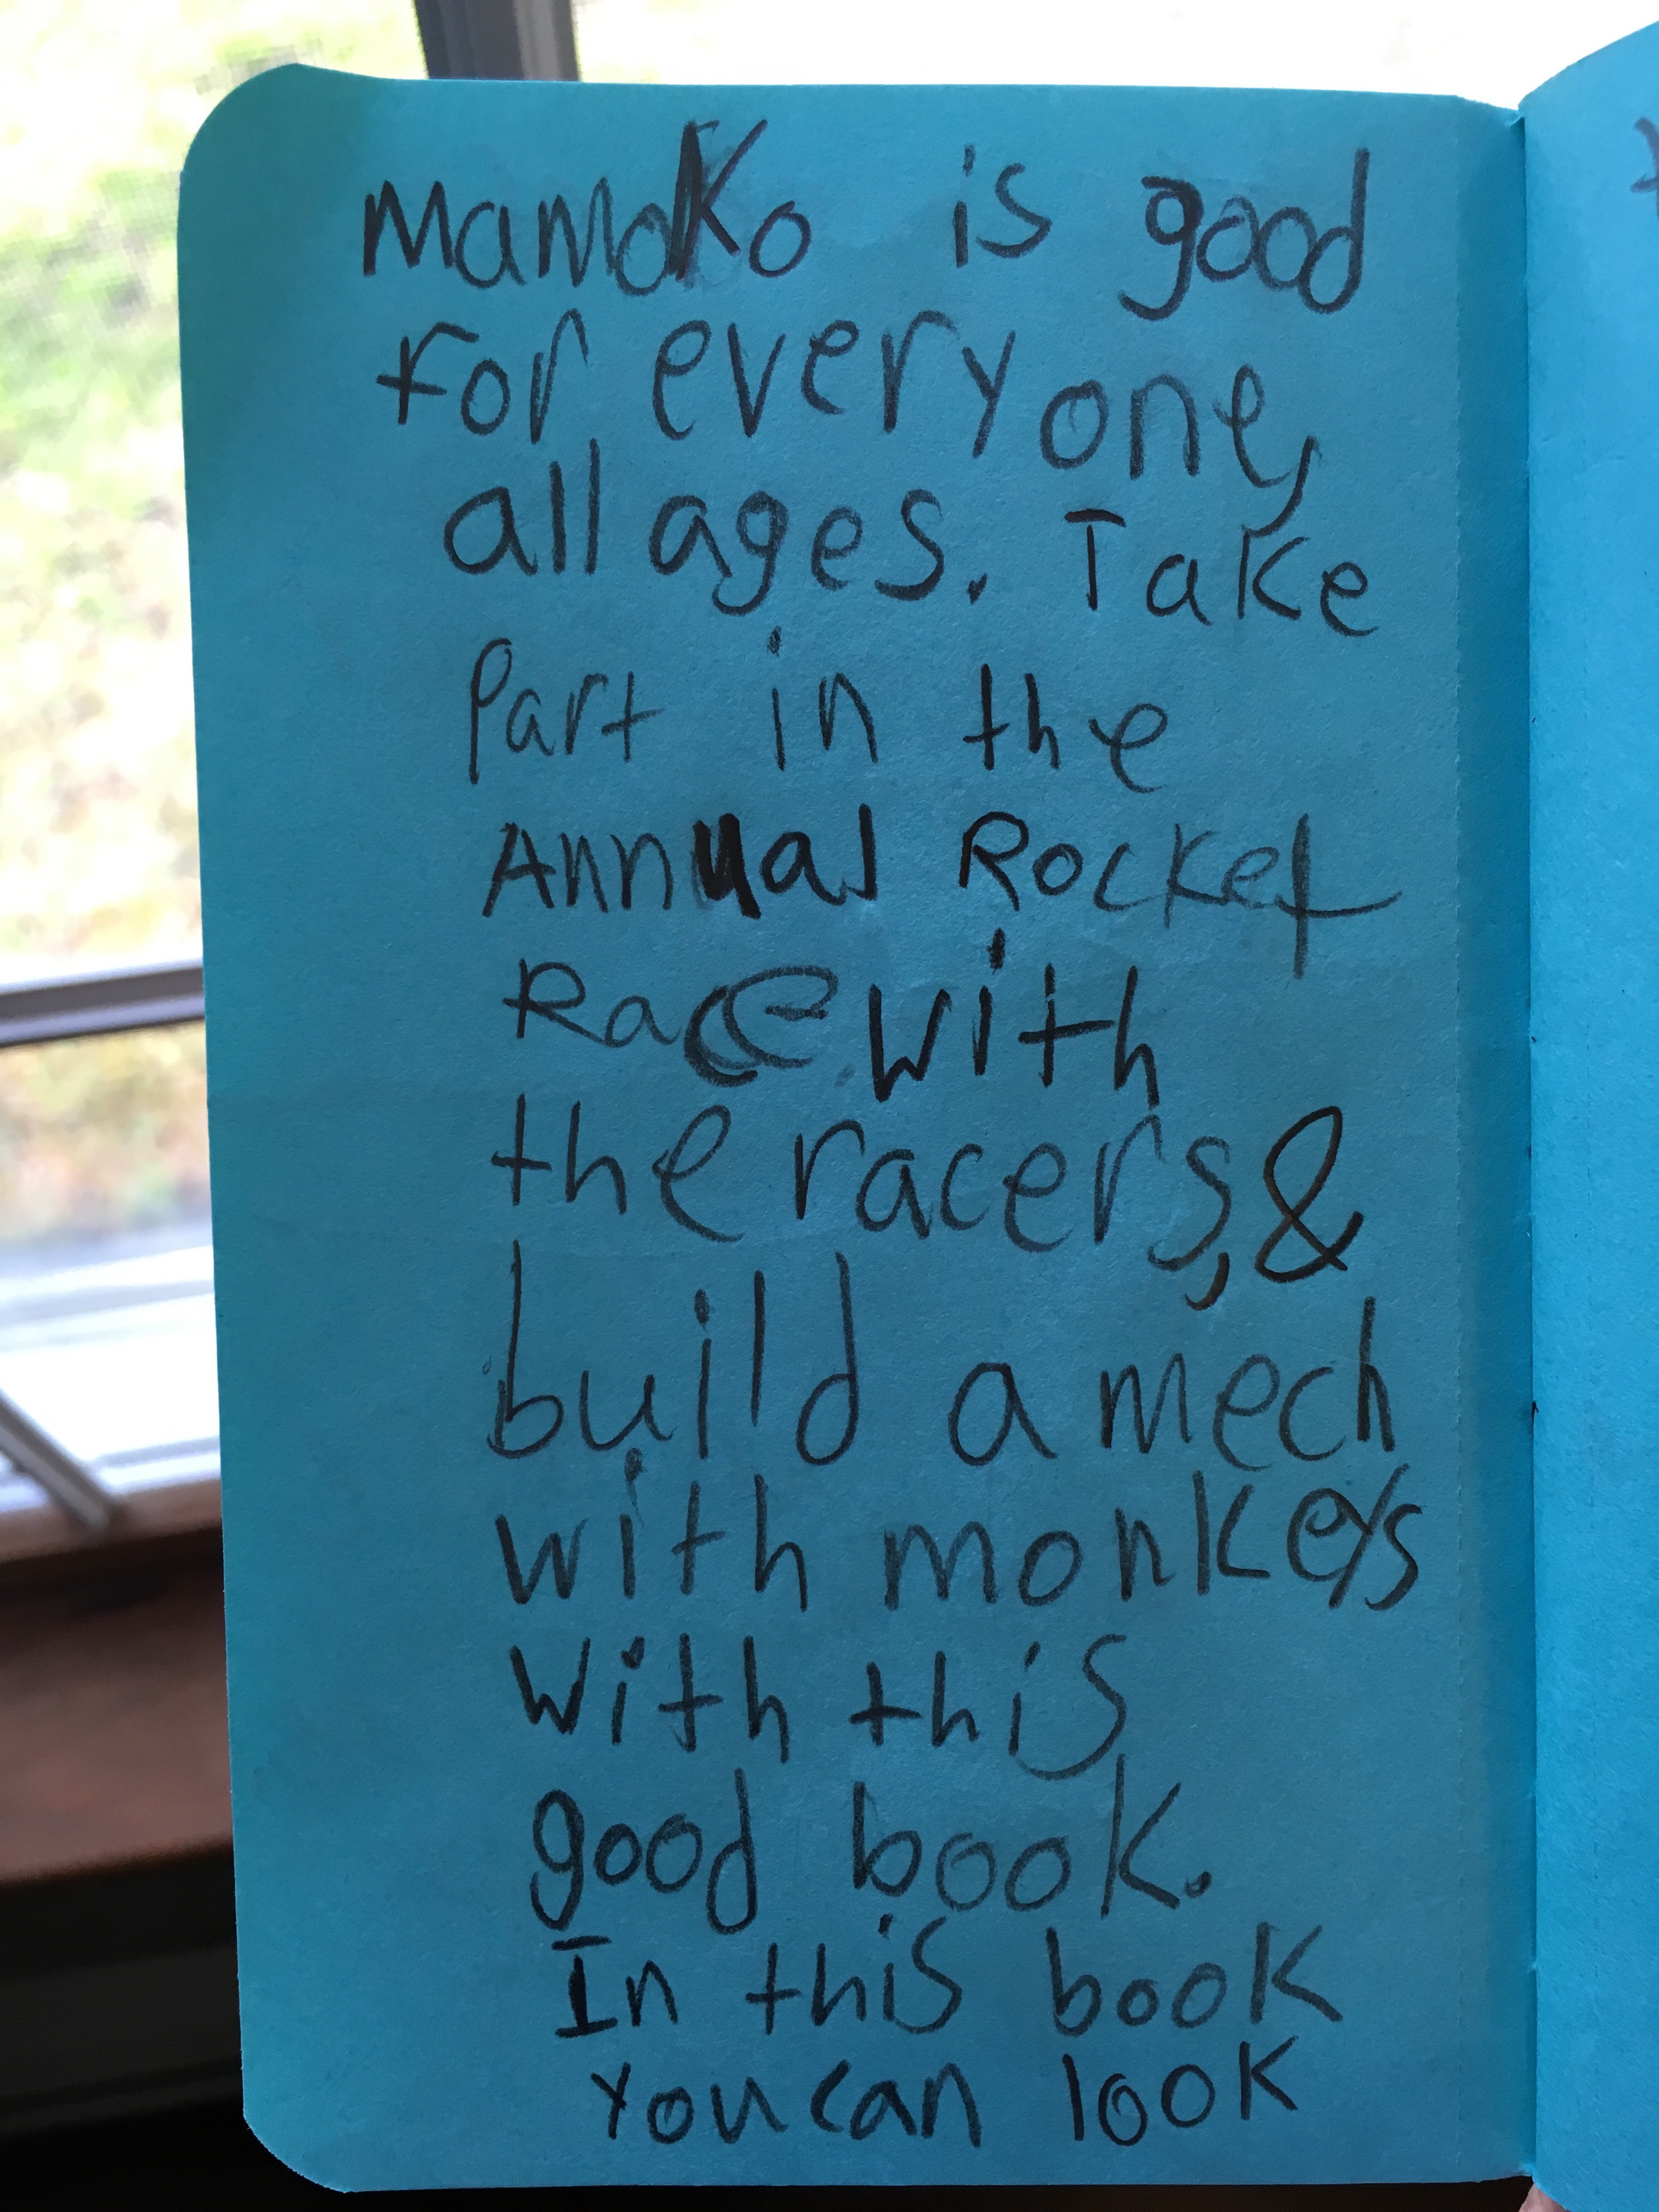 MamoKo is good
for everyone,
all ages. Take
Part in the
Annual Rocket
Race with
the racers, &
build a mech
with monkeys
with this
good book.
In this book
you can look